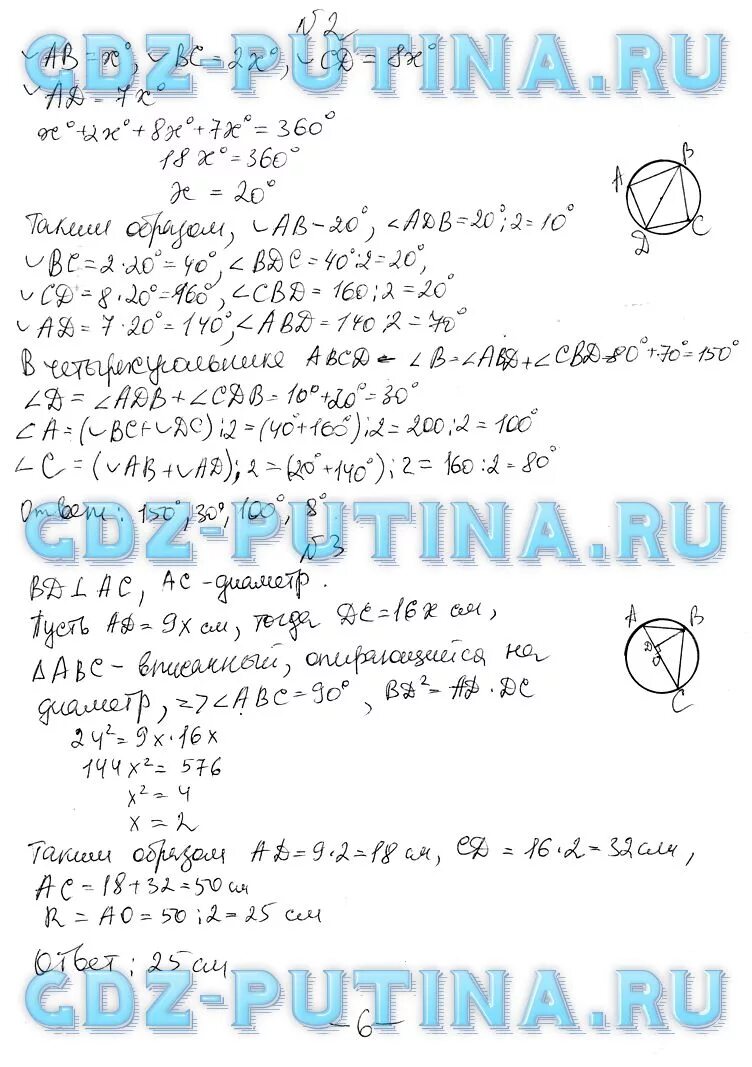 N2
◡AB = x°, ◡BC = 2x°, ◡CD = 8x°
GDZ-PUTINA.RU
◡AD = 7x°
x° + 2x° + 8x° + 7x° = 360°
18x° = 360°
x = 20°
Таким образом, ◡AB - 20°, ∠ADB = 20°:2 = 10°
◡BC = 2·20° = 40°, ∠BDC = 40°:2 = 20°,
◡CD = 8·20° = 160°, ∠CBD = 160:2 = 20°
◡AD = 7·20° = 140°, ∠ABD = 140:2 = 70°
A
B
C
D
В четырехугольнике ABCD - ∠B = ∠ABD + ∠CBD = 80° + 70° = 150°
∠D = ∠ADB + ∠CDB = 10° + 20° = 30°
∠A = (◡BC + ◡DC):2 = (40° + 160°):2 = 200:2 = 100°
∠C = (◡AB + ◡AD):2 = (20° + 140°):2 = 160:2 = 80°
Ответ: 150°, 30°, 100°, 8°.
GDZ-PUTINA.RU
N3
BD⊥AC, AC - диаметр.
Пусть AD = 9x см, тогда DC = 16x см,
ΔABC - вписанный, опирающийся на
диаметр, => ∠ABC = 90°, BD² = AD·DC
24² = 9x·16x
144x² = 576
x² = 4
x = 2
A
B
D
O
C
Таким образом AD = 9·2 = 18 см, CD = 16·2 = 32 см,
AC = 18 + 32 = 50 см
R = AO = 50:2 = 25 см
Ответ: 25 см
GDZ-PUTINA.RU
-6-